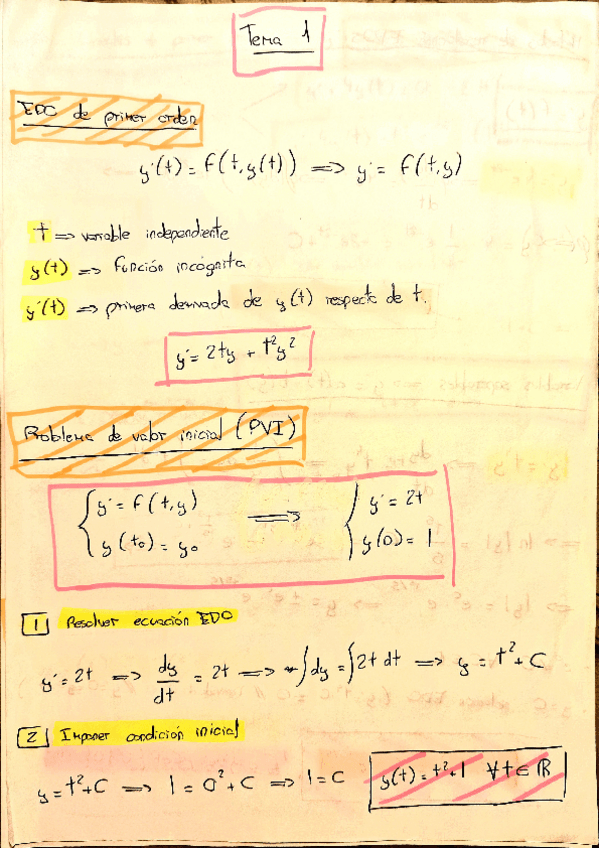 Tema 1
EDO de primer orden
y'(t) = f(t,y(t)) => y' = f(t,y)
t => variable independiente
y(t) => función incógnita
y'(t) => primera derivada de y(t) respecto de t.
y' = 2ty + t²y²
Problema de valor inicial (PVI)
{ y' = f(t,y) => { y' = 2t
y(t₀) = y₀ y(0) = 1
1 Resolver ecuación EDO
y' = 2t => dy/dt = 2t => ∫dy = ∫2t dt => y = t² + C
2 Imponer condición inicial
y = t² + C => 1 = 0² + C => 1 = C y(t) = t² + 1 ∀t ∈ ℝ